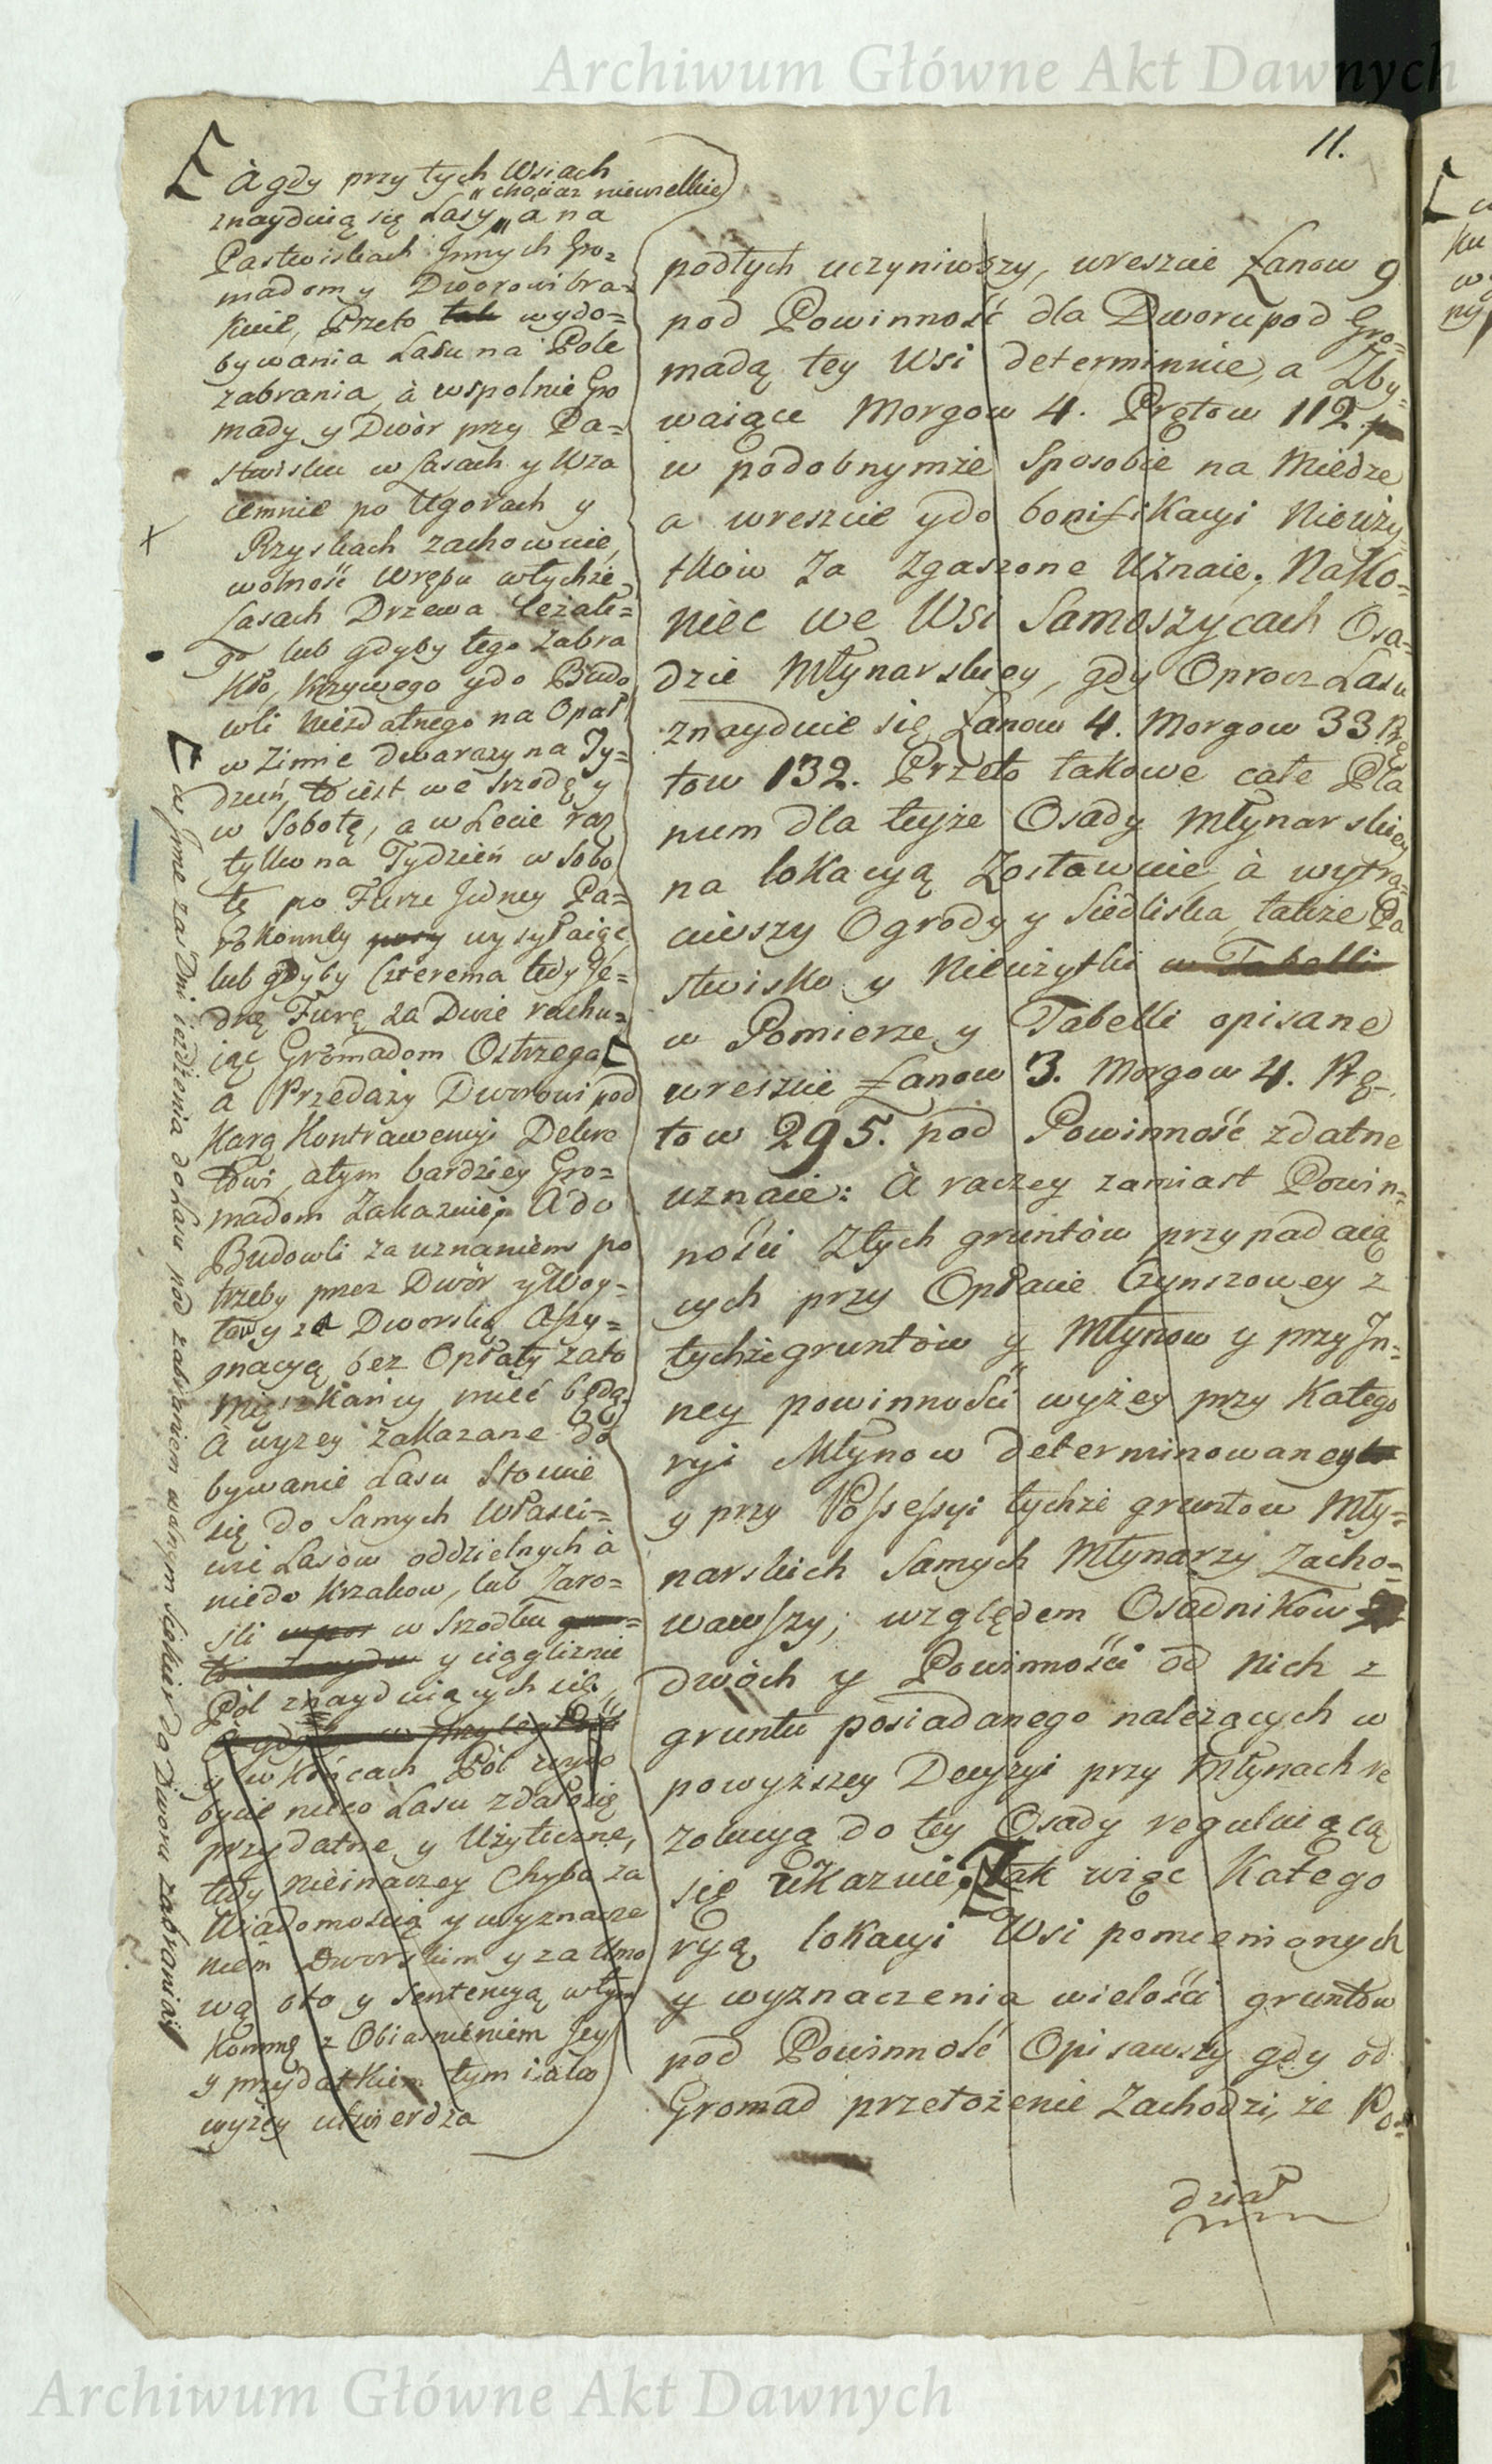 Archiwum Główne Akt Dawnych
11.
à gdy przy tych Wsiach
"chociaz niewielkie
znayduią się Lasy," a na
Pastwiskach Jnnych Gro=
madom y Dworowi bra=
kuie, Przeto tak wydo=
bywania Lasu na Pole
zabrania, à wspolnie Gro
mady y Dwór przy Pa=
stwisku w Lasach y Wza
iemnie po Ugorach y
Rzyskach zachowuie,
wolność Wrębu wtychże
Lasach Drzewa Leżałe=
go lub gdyby tego zabra
kło, Krzywego ydo Budo
wli Niezdatnego na Opał
w Zimie dwarazy na Ty=
dzień, to iest we Srzodę y
w Sobotę, a w Lecie raz
tylko na Tydzień w Sobo
tę po Furze Jedney Pa=
rokonney wysyłaiąc
lub gdyby Czterema tedy Je=
dną Furę za Dwie rachu=
iąc Gromadom Ostrzega,
a Przedaży Dworowi pod
Karą Kontrawencyi Dekre
towi, atym bardziey Gro=
madom Zakazuie; A do
Budowli za uznaniem po
trzeby przez Dwór y Woy=
towy za Dworską Assy=
gnacyą bez Opłaty zato
Mięszkańcy mieć będą.
A wyzey zakazane do
bywanie Lasu Stosuie
się do Samych Własci=
wie Lasow oddzielnych à
niedo Krzakow, lub Zaro=
sli w Srzodku
y ciągliznie
Pól znayduiących się,
y w Końcach Pól
bycie nieco Lasu zdało się
przydatne y Użyteczne,
tedy nieinaczey Chyba za
Wiadomoscią y wyznacze
niem Dworskim y za Umo
wą oto y Sentencyą wtym
Kommę z Obiasnieniem Jey
y przydatkiem tym iako
wyżey utwierdza
w Jnne zas Dni ieżdżenia do Lasu pod zabraniem w
do Dworu zabrania
podłych uczyniwszy, wreszcie Łanow 9
pod Powinność dla Dworu pod Gro=
madą tey Wsi determinuie, a Zby=
waiące Morgow 4. Prętow 112.
w podobnymże Sposobie na Miedze
a wreszcie ydo bonifikacyi Nieuży=
tkow Za Zgaszone Uznaie. Nako=
niec we Wsi Samoszycach Osa=
dzie Młynarskiey, gdy Oprocz Lasu
znayduie się Łanow 4. Morgow 33 Prę
tow 132. Przeto takowe całe Pla
num dla teyże Osady Młynarskiey
na lokacyą Zostawuie, à wytrą=
ciwszy Ogrody y Siedliska, także Pa
stwisko y Nieużytki w Tabelli
w Pomierze y Tabelli opisane
wreszcie Łanow 3. Morgow 4. Prę=
tow 295. pod Powinność zdatne
uznaie: à raczey zamiast Powin=
ności Ztych gruntów przypadaią
cych przy Opłacie Czynszowey z
tychże gruntów y Młynow y przy Jn=
ney powinności wyżey przy Katego
ryi Młynow determinowaney
y przy Possessyi tychże gruntow Mły=
narskich Samych Młynarzy Zacho=
wawszy; względem Osadnikow
dwóch y Powinności od Nich z
gruntu posiadanego należących w
powyższey Decyzyi przy Młynach re
zolucyą do tey Osady reguluiącą
się Ukazuie. Tak więc Katego
ryą lokacyi Wsi pomienionych
y wyznaczenia wielości gruntow
pod Powinność Opisawszy gdy od
Gromad przełożenie Zachodzi, że Po=
dział
Archiwum Główne Akt Dawnych